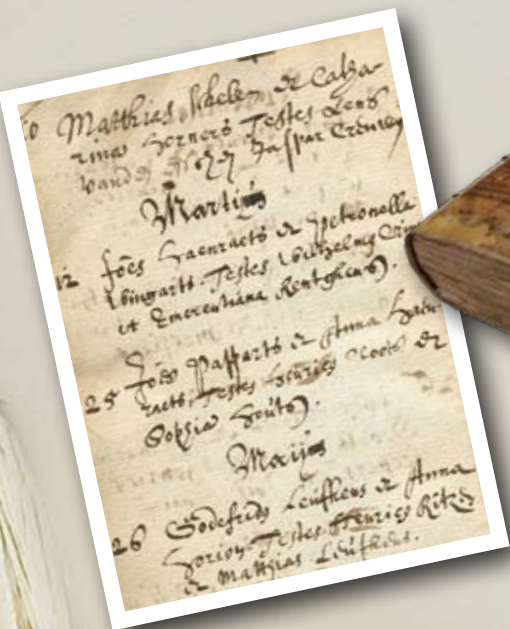 Matthias Schelen et Catha-
rina Horners Testes
Caspar
Martius
12 Joes Haenraets et Petronella
Wingarts. Testes Wilhelmus
et Emerentiana Rentghens.
25 Joes Passarts et Anna Haen-
raets, Testes Henricus et
Sophia Houts.
Maijus
26 Godefridus Leufkens et Anna
Horion Testes Henricus
et Matthias Leufkens.